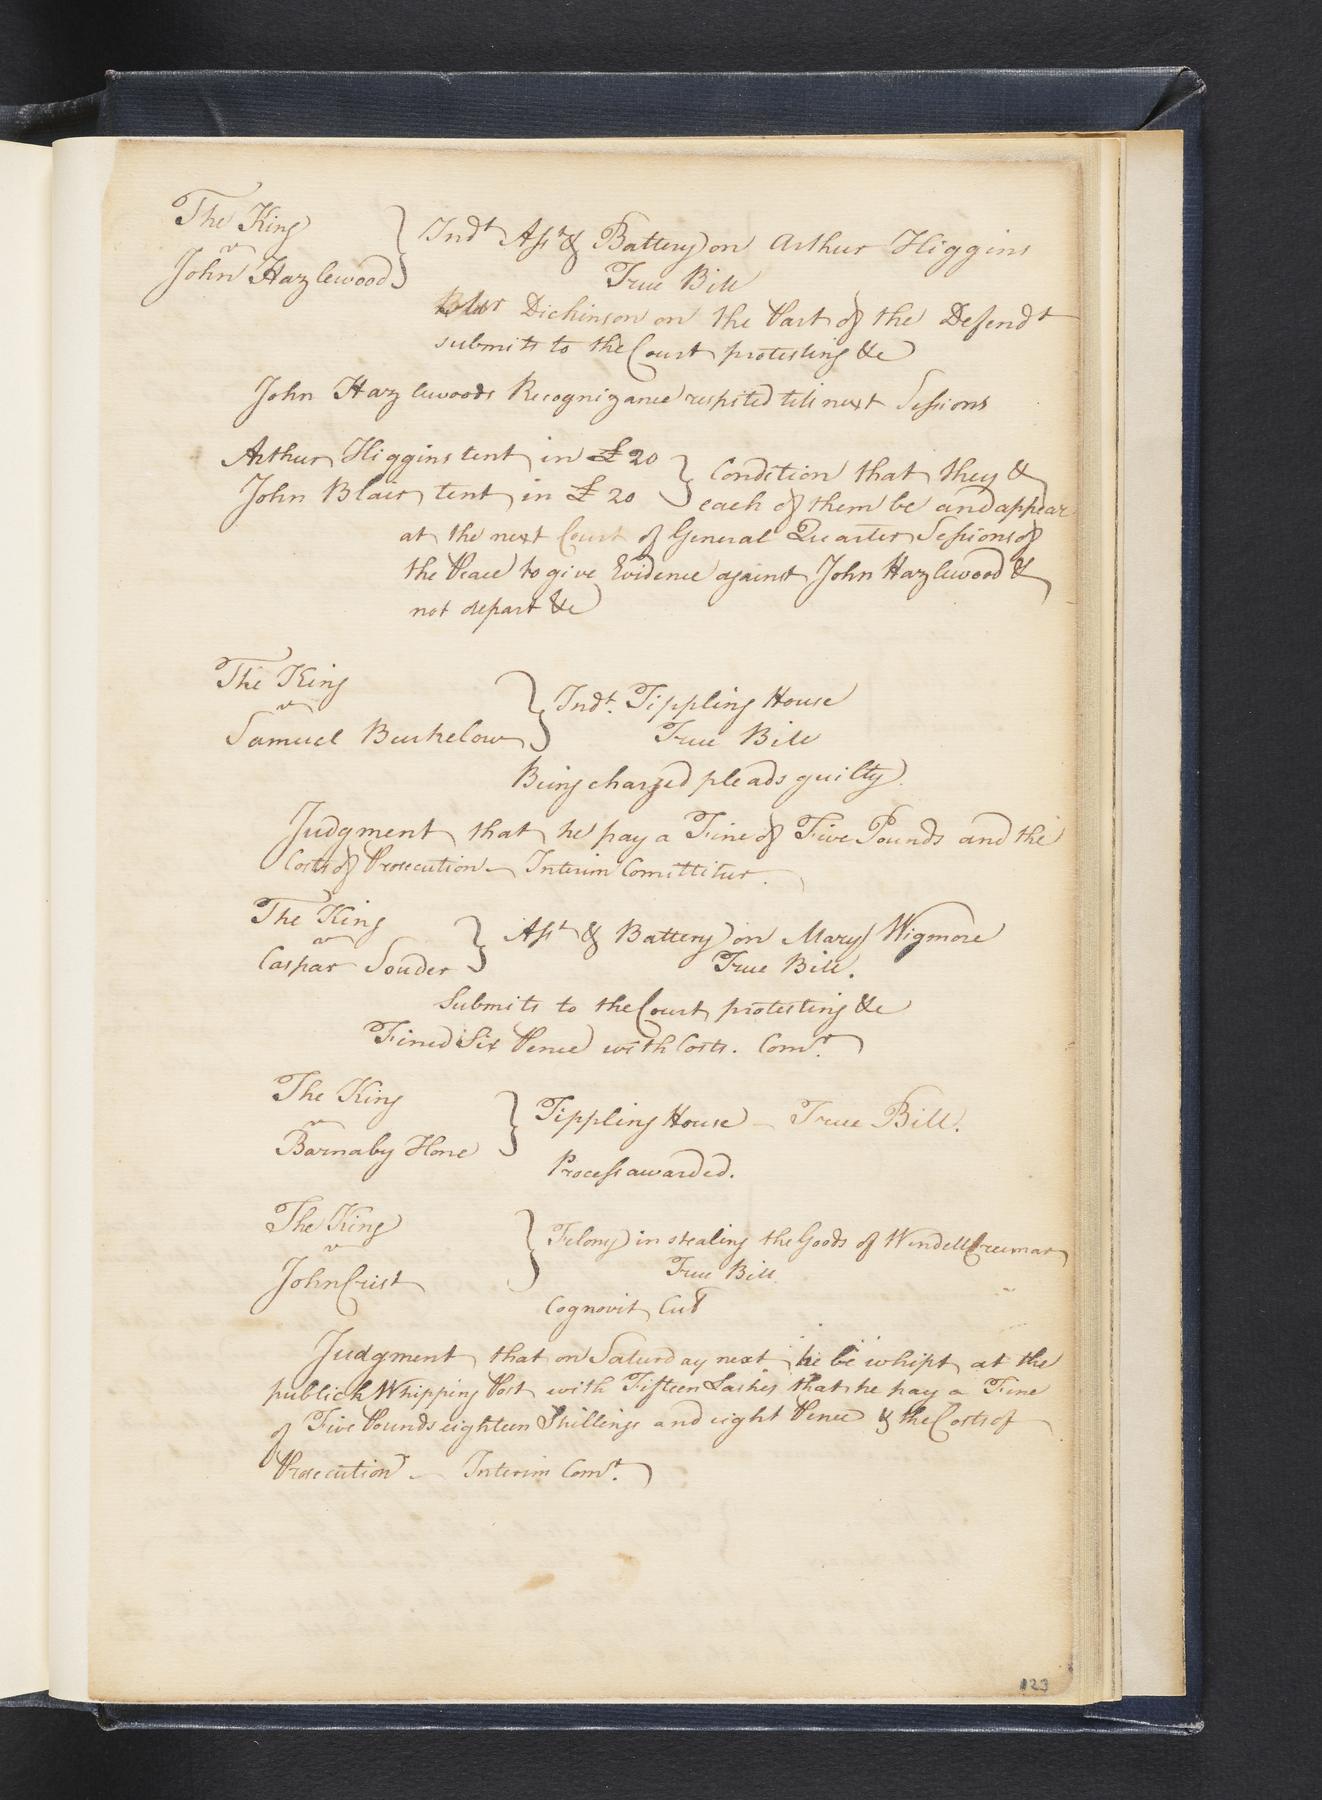 The King
v
John Hazlewood } Indt Asst & Battery on Arthur Higgins
True Bill
Dickinson on the Part of the Defendt
submits to the Court protesting &c
John Hazlewoods Recognizance respited till next Sessions
Arthur Higgins tent in £20
John Blair tent in £20 } Condition that they &
each of them be and appear
at the next Court of General Quarter Sessions of
the Peace to give Evidence against John Hazlewood &
not depart &c
The King
v
Samuel Burkelow } Indt. Tippling House
True Bill
Being charged pleads guilty.
Judgment that he pay a Fine of Five Pounds and the
Costs of Prosecution – Interim Comittitur.
The King
v
Caspar Souder } Asst & Battery on Mary Wigmore
True Bill.
Submits to the Court protesting &c
Fined Six Pence with Costs. Comt.
The King
v
Barnaby Hone } Tippling House – True Bill.
Process awarded.
The King
v
John Crist } Felony in stealing the Goods of Windell
True Bill
Cognovit Cul
Judgment that on Saturday next he be whipt at the
publick Whipping Post with Fifteen Lashes that he pay a Fine
of Five Pounds eighteen Shillings and eight Pence & the Costs of
Prosecution – Interim Comt.
123